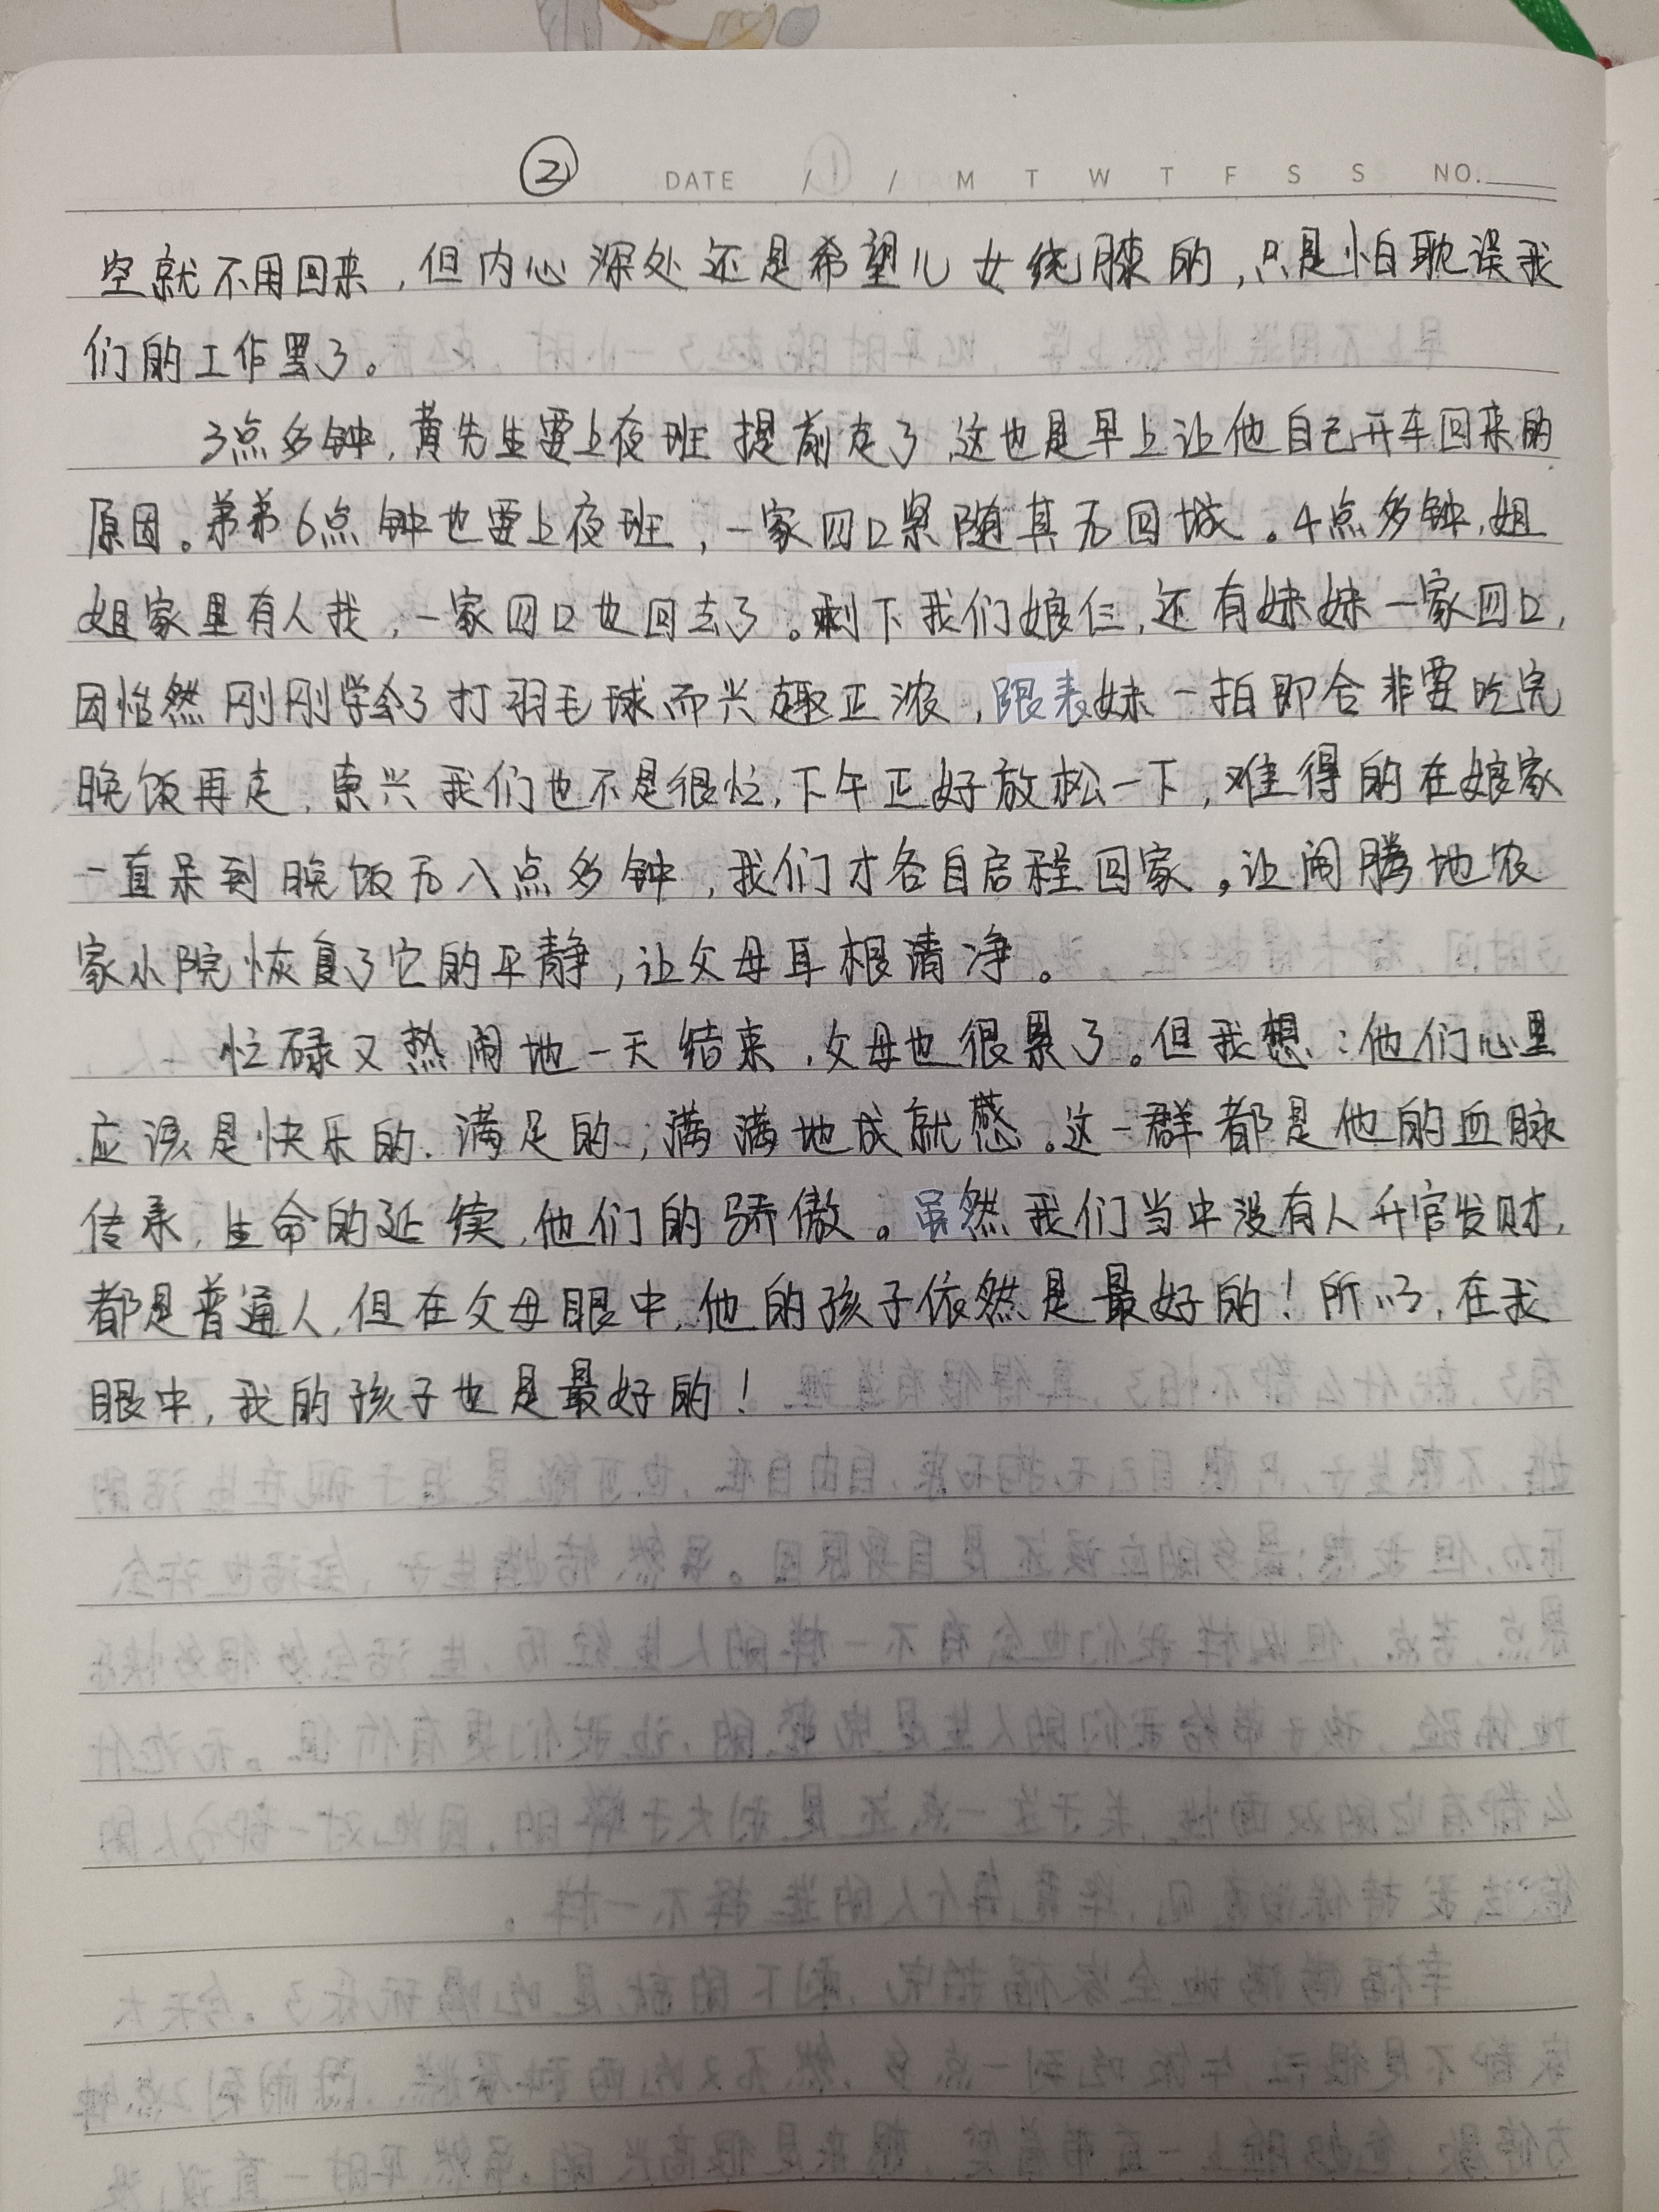 ②
DATE / / M T W T F S S NO.
空就不用回来，但内心深处还是希望儿女绕膝的，只是怕耽误我
们的工作罢了。
3点多钟，黄先生要上夜班提前走了，这也是早上让他自己开车回来的
原因。弟弟6点钟也要上夜班，一家四口紧随其后回城。4点多钟，姐
姐家里有人找，一家四口也回去了。剩下我们娘仨，还有妹妹一家四口，
因怡然刚刚学会了打羽毛球而兴趣正浓，跟表妹一拍即合非要吃完
晚饭再走，索兴我们也不是很忙，下午正好放松一下，难得的在娘家
一直呆到晚饭后八点多钟，我们才各自启程回家。让闹腾地农
家小院恢复了它的平静，让父母耳根清净。
忙碌又热闹地一天结束，父母也很累了。但我想：他们心里
应该是快乐的、满足的，满满地成就感。这一群都是他的血脉
传承，生命的延续，他们的骄傲。虽然我们当中没有人升官发财，
都是普通人，但在父母眼中，他的孩子依然是最好的！所以，在我
眼中，我的孩子也是最好的！